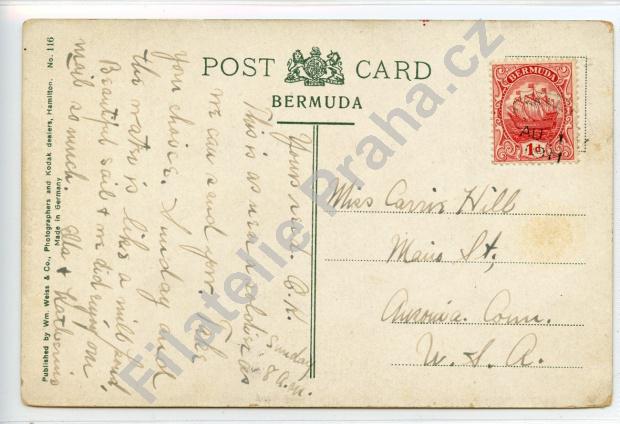 POST CARD
BERMUDA
BERMUDA
1d
1d
AU
Miss Carrie Hill
Main St,
Ansonia. Conn.
U. S. A.
Sunday
8 a.m.
Yours rec'd.
This is as near a
we can send you. Take
you choice. Sunday and
the water is like a mill pond
Beautiful sail & we did enjoy our
mail so much. Ella & Katherine
Published by Wm. Weiss & Co., Photographers and Kodak dealers, Hamilton. No. 116
Made in Germany
Filatelie Praha.cz